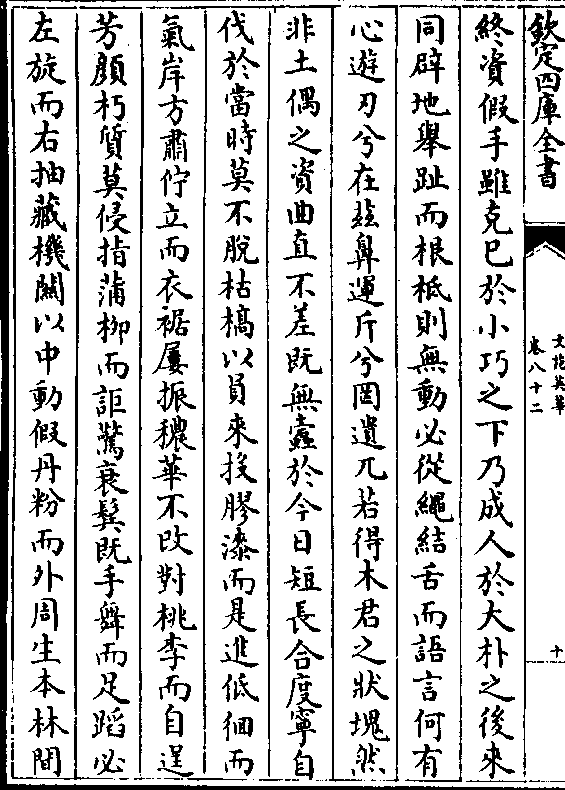 欽定四庫全書
文苑英華
卷八十二
十
終資假手雖克已於小巧之下乃成人於大朴之後来
同辟地舉趾而根柢則無動必從繩結舌而語言何有
心遊刃兮在兹鼻運斤兮罔遺兀若得木君之狀塊然
非土偶之資曲直不差既無蠧於今日短長合度寧自
伐於當時莫不脫枯槁以貟来投膠漆而是進低徊而
氣岸方肅佇立而衣裾屢振穠華不改對桃李而自逞
芳顔朽質莫侵指蒲栁而詎驚衰鬂既手舞而足蹈必
左旋而右抽藏機關以中動假丹粉而外周生本林間